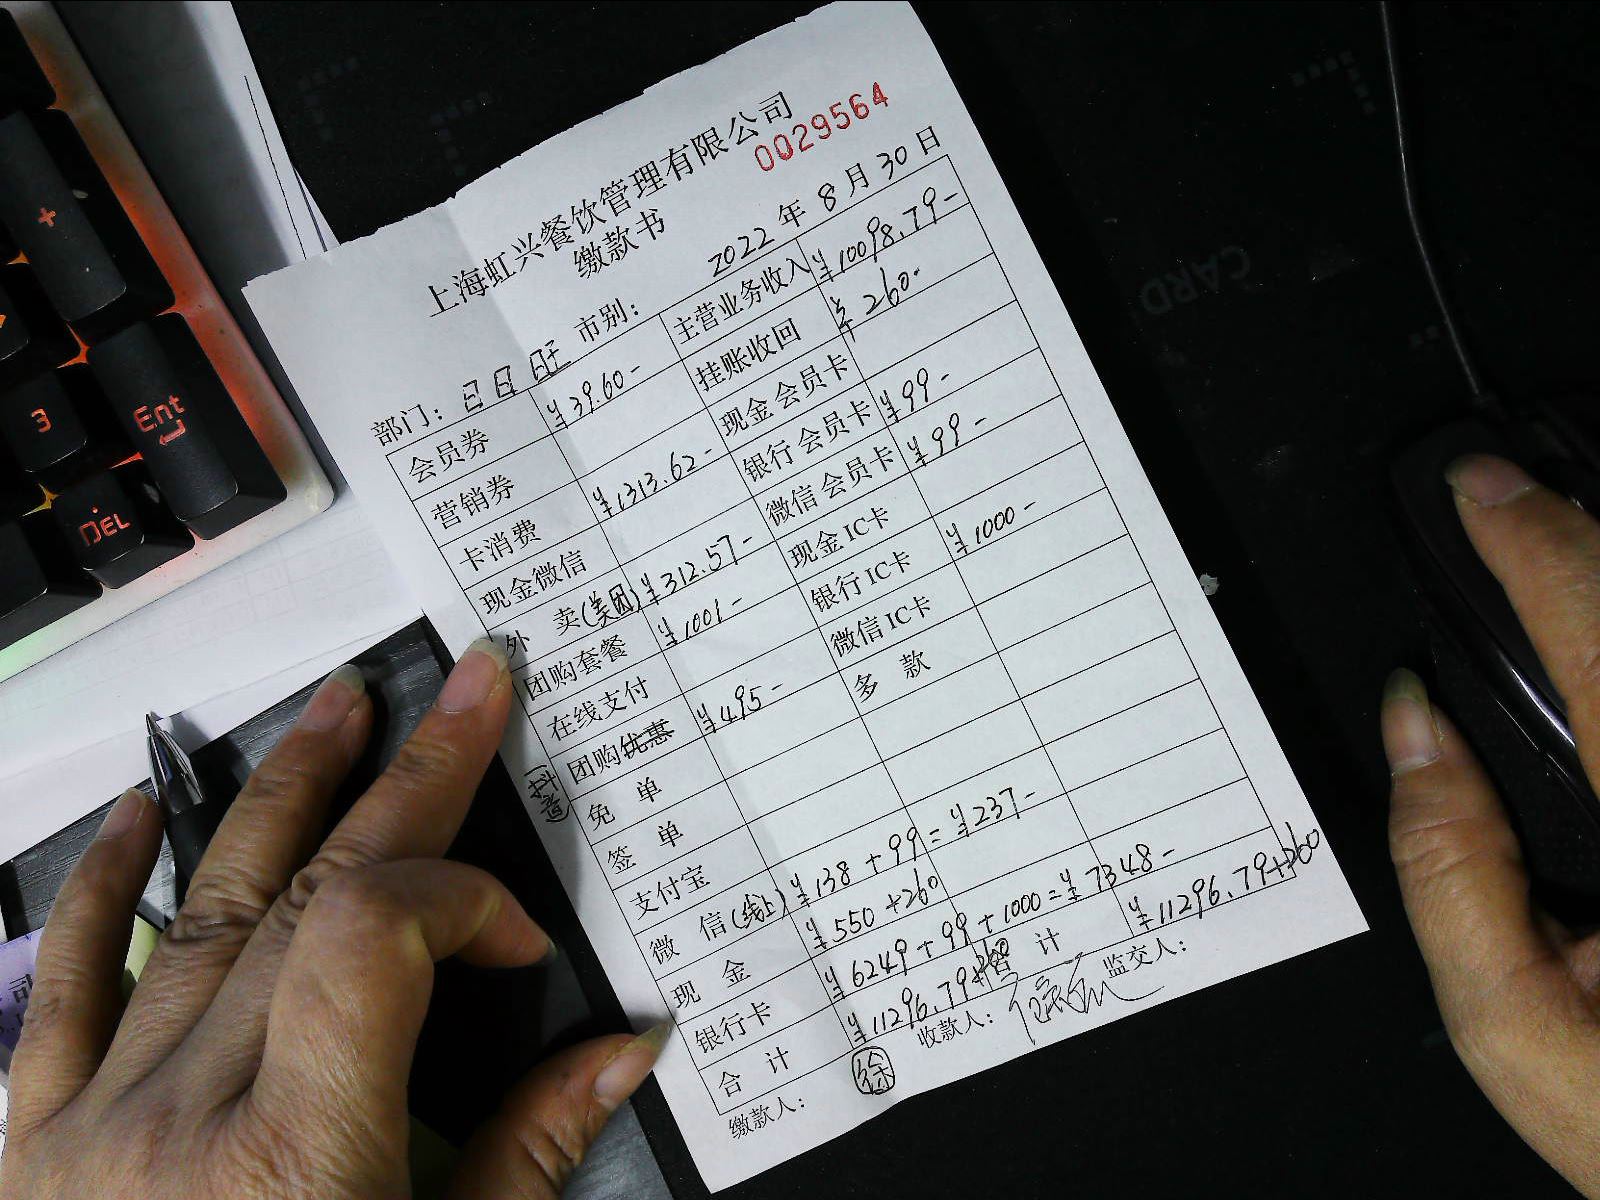 上海虹兴餐饮管理有限公司
0029564
缴款书
部门：日日旺 市别： 2022年8月30日
会员券 ¥39.60- 主营业务收入 ¥10098.79-
营销券 挂账收回 ¥260-
卡消费 ¥1313.62- 现金会员卡
现金微信 银行会员卡 ¥99-
外 卖(美团) ¥312.57- 微信会员卡 ¥99-
团购套餐 ¥1001- 现金IC卡
在线支付 银行IC卡 ¥1000-
团购优惠(抖音) ¥495- 微信IC卡
免 单 多 款
签 单
支付宝
微 信(线上) ¥138+99=¥237-
现 金 ¥550+260
银行卡 ¥6249+99+1000=¥7348-
合 计 ¥11296.79+260 合 计 ¥11296.79+260
缴款人： 徐 收款人： 监交人：
+
3
Ent
DEL
CARD